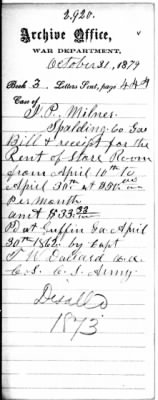 2.920.
Archive Office,
WAR DEPARTMENT,
October 31, 1879
Book 3, Letters Sent, page 444
Case of
J. P. Milner
Spalding Co. Gao
Bill & receipt for the
Rent of Store Room
from April 10th to
April 30th at $50
Per Month
amt $33.33
Pd at Griffin Ga April
30th 1862 by Capt
C. S. Army.
1873